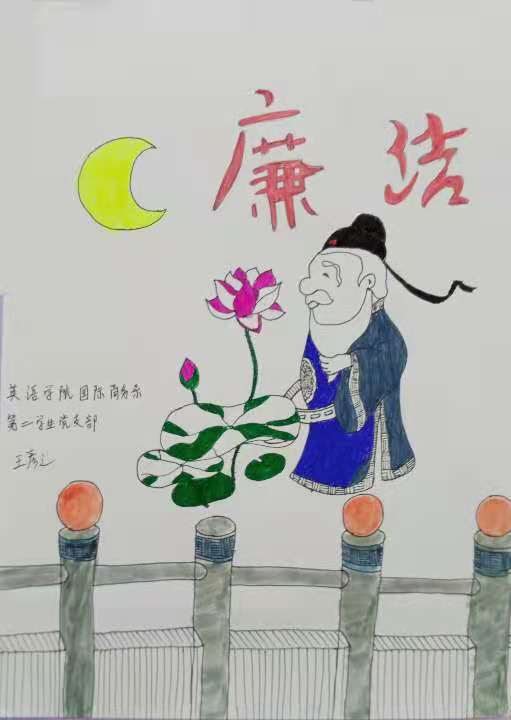 廉洁
英语学院国际商务系
第二学生党支部
王彦之